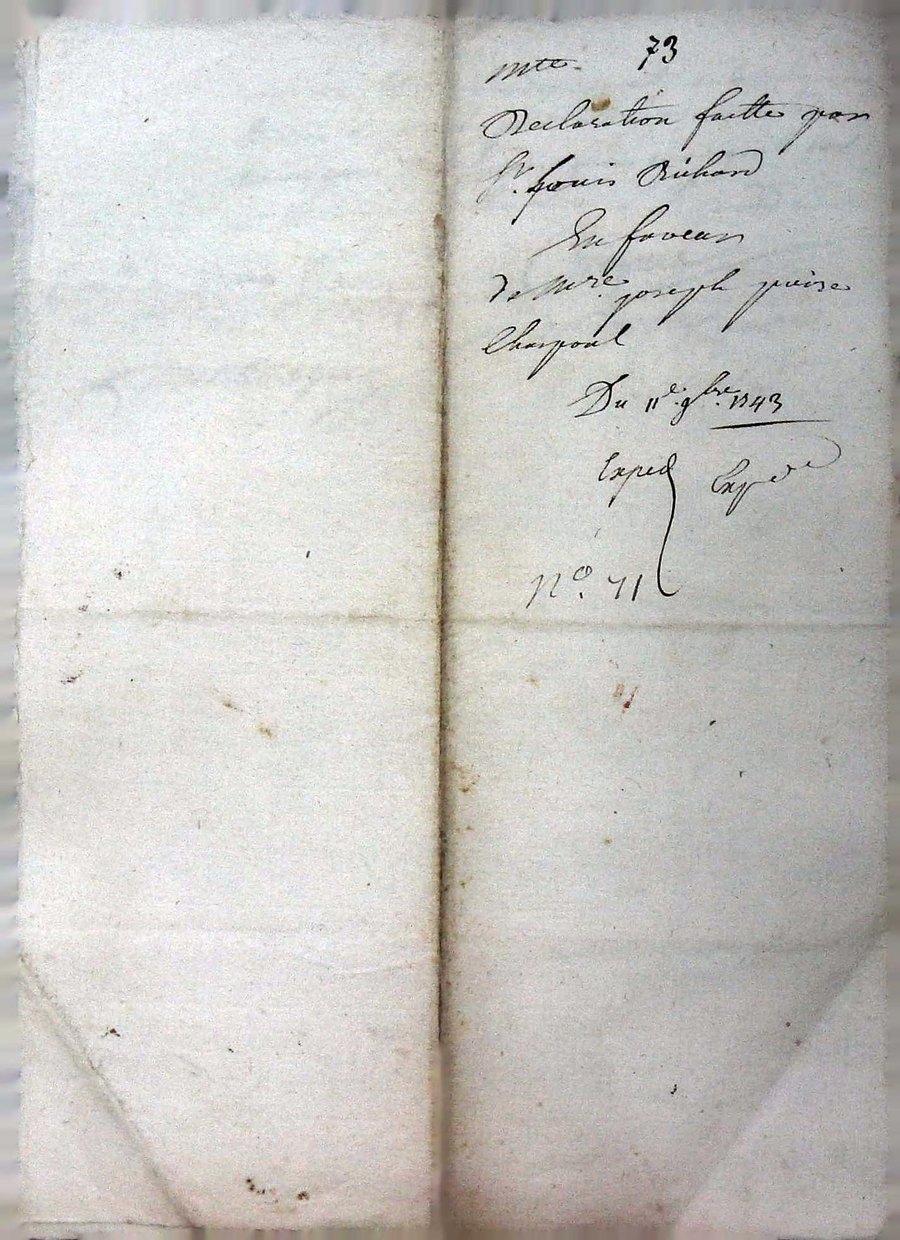 mtte. 73
Declaration faitte par
Sr. Louis Richard
En faveur
de Mre. joseph
Du 11e. 9bre. 1743
Exped Expde
No. 71